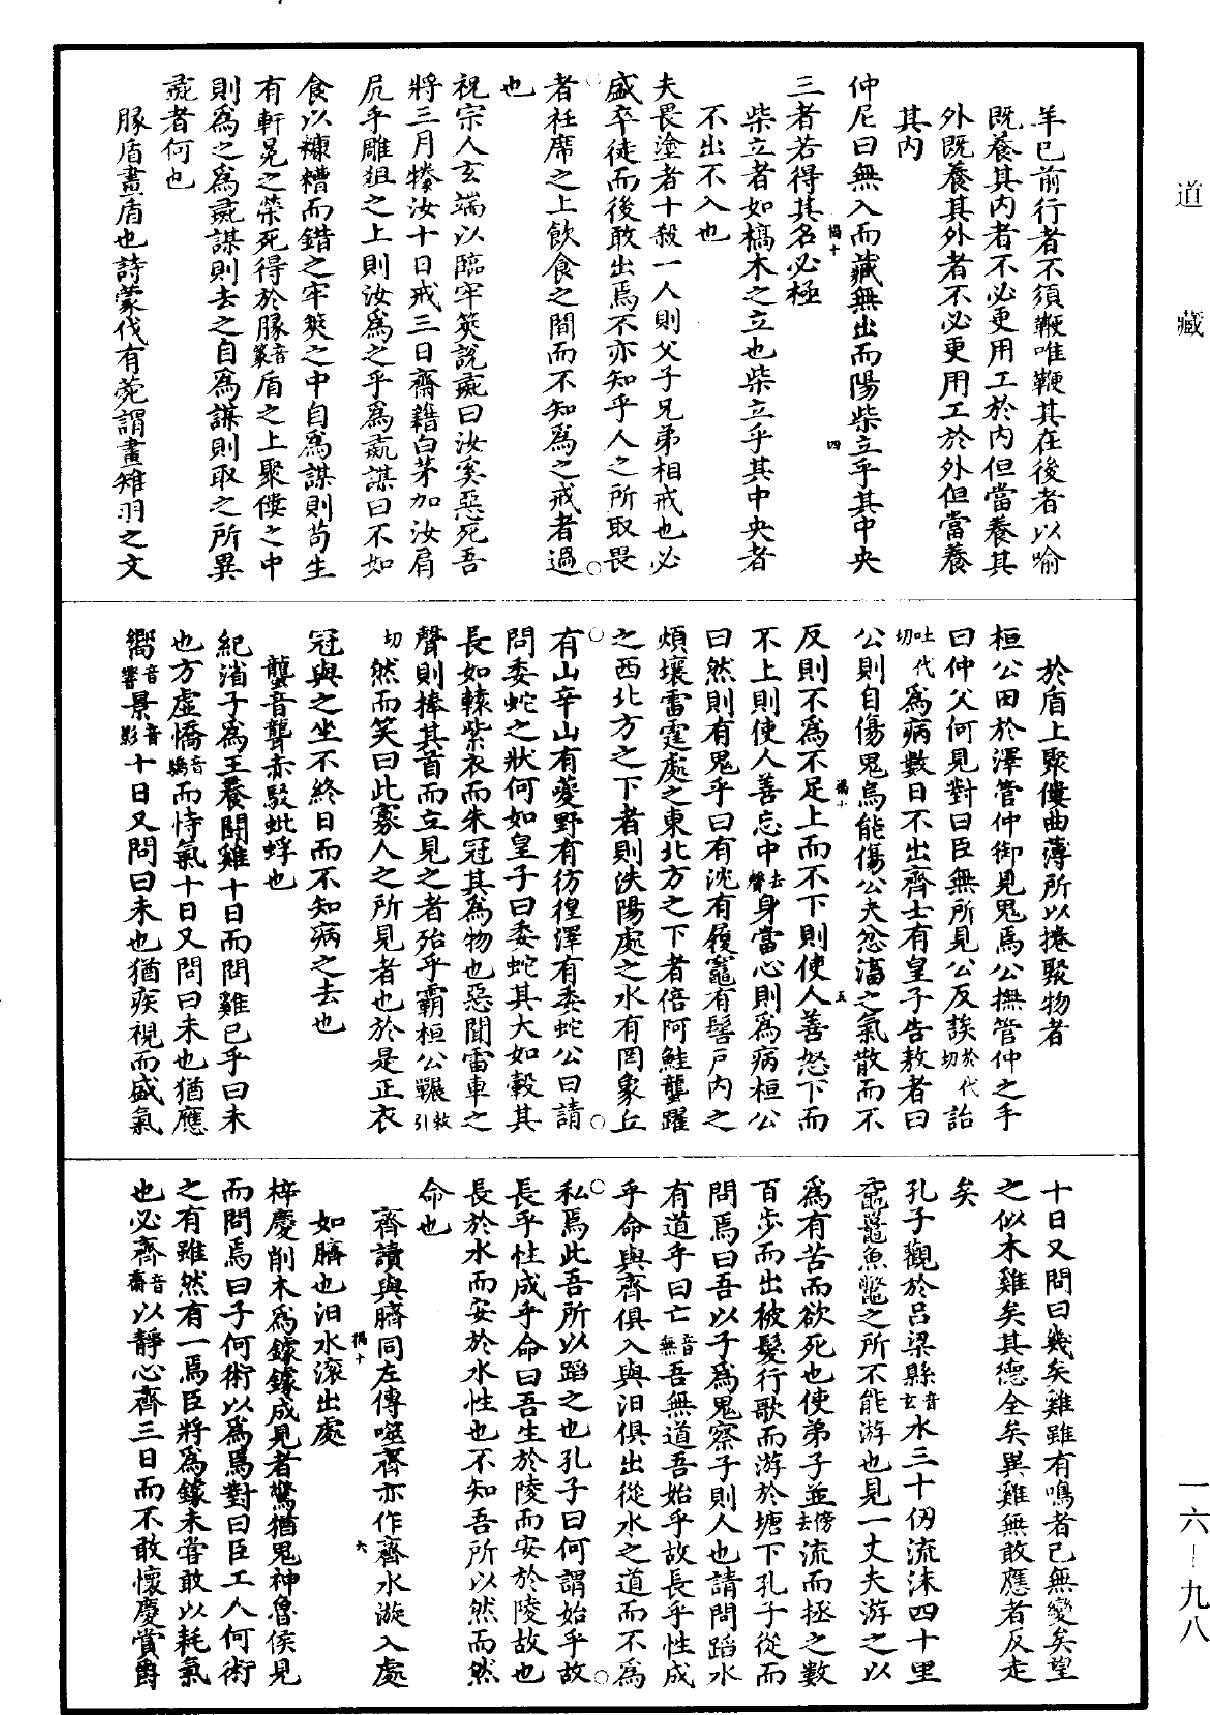 道藏
羊已前行者不須鞭唯鞭其在後者以喻
既養其內者不必更用工於內但當養其
外既養其外者不必更用工於外但當養
其內
仲尼曰無入而藏無出而陽柴立乎其中央
三者若得其名必極
柴立者如槁木之立也柴立乎其中央者
不出不入也
夫畏塗者十殺一人則父子兄弟相戒也必
盛卒徒而後敢出焉不亦知乎人之所取畏
者衽席之上飲食之間而不知為之戒者過
也
祝宗人玄端以臨牢筴說彘曰汝奚惡死吾
將三月㹖汝十日戒三日齋藉白茅加汝肩
尻乎雕俎之上則汝為之乎為彘謀曰不如
食以糠糟而錯之牢筴之中自為謀則苟生
有軒冕之榮死得於腞音篆盾之上聚僂之中
則為之為彘謀則去之自為謀則取之所異
彘者何也
腞盾畫盾也詩蒙伐有菀謂畫雉羽之文
於盾上聚僂曲薄所以捲聚物者
桓公田於澤管仲御見鬼焉公撫管仲之手
曰仲父何見對曰臣無所見公反誒於代切詒
吐代切為病數日不出齊士有皇子告敖者曰
公則自傷鬼烏能傷公夫忿滀之氣散而不
反則不為不足上而不下則使人善怒下而
不上則使人善忘中去聲身當心則為病桓公
曰然則有鬼乎曰有沈有履竈有髻戶內之
煩壤雷霆處之東北方之下者倍阿鮭蠪躍
之西北方之下者則泆陽處之水有罔象丘
有山辛山有夔野有彷徨澤有委蛇公曰請
問委蛇之狀何如皇子曰委蛇其大如轂其
長如轅紫衣而朱冠其為物也惡聞雷車之
聲則捧其首而立見之者殆乎霸桓公囅敕引
切然而笑曰此寡人之所見者也於是正衣
冠與之坐不終日而不知病之去也
蠪音聾赤駁蚍蜉也
紀渻子為王養鬭雞十日而問雞已乎曰未
也方虛憍音驕而恃氣十日又問曰未也猶應
嚮音響景音影十日又問曰未也猶疾視而盛氣
十日又問曰幾矣雞雖有鳴者已無變矣望
之似木雞矣其德全矣異雞無敢應者反走
矣
孔子觀於呂梁縣音玄水三十仞流沫四十里
黿鼉魚鼈之所不能游也見一丈夫游之以
為有苦而欲死也使弟子並傍去流而拯之數
百步而出被髮行歌而游於塘下孔子從而
問焉曰吾以子為鬼察子則人也請問蹈水
有道乎曰亡音無吾無道吾始乎故長乎性成
乎命與齊俱入與汩俱出從水之道而不為
私焉此吾所以蹈之也孔子曰何謂始乎故
長乎性成乎命曰吾生於陵而安於陵故也
長於水而安於水性也不知吾所以然而然
命也
齊讀與臍同左傳噬齊亦作齊水漩入處
如臍也汩水滾出處
梓慶削木為鐻鐻成見者驚猶鬼神魯侯見
而問焉曰子何術以為焉對曰臣工人何術
之有雖然有一焉臣將為鐻未嘗敢以耗氣
也必齊音齋以靜心齊三日而不敢懷慶賞爵
一六－九八